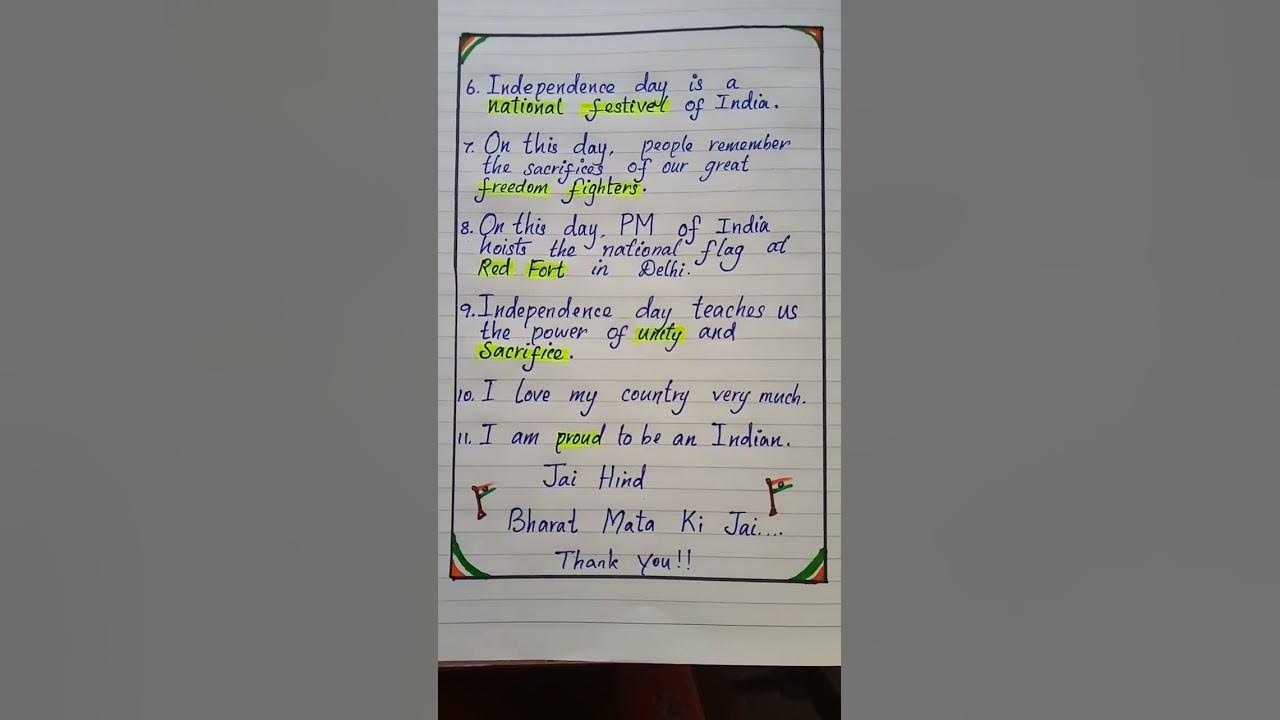 6. Independence day is a
national festival of India.
7. On this day, people remember
the sacrifices of our great
freedom fighters.
8. On this day, PM of India
hoists the national flag at
Red Fort in Delhi.
9. Independence day teaches us
the power of unity and
Sacrifice.
10. I love my country very much.
11. I am proud to be an Indian.
Jai Hind
Bharat Mata Ki Jai....
Thank you!!